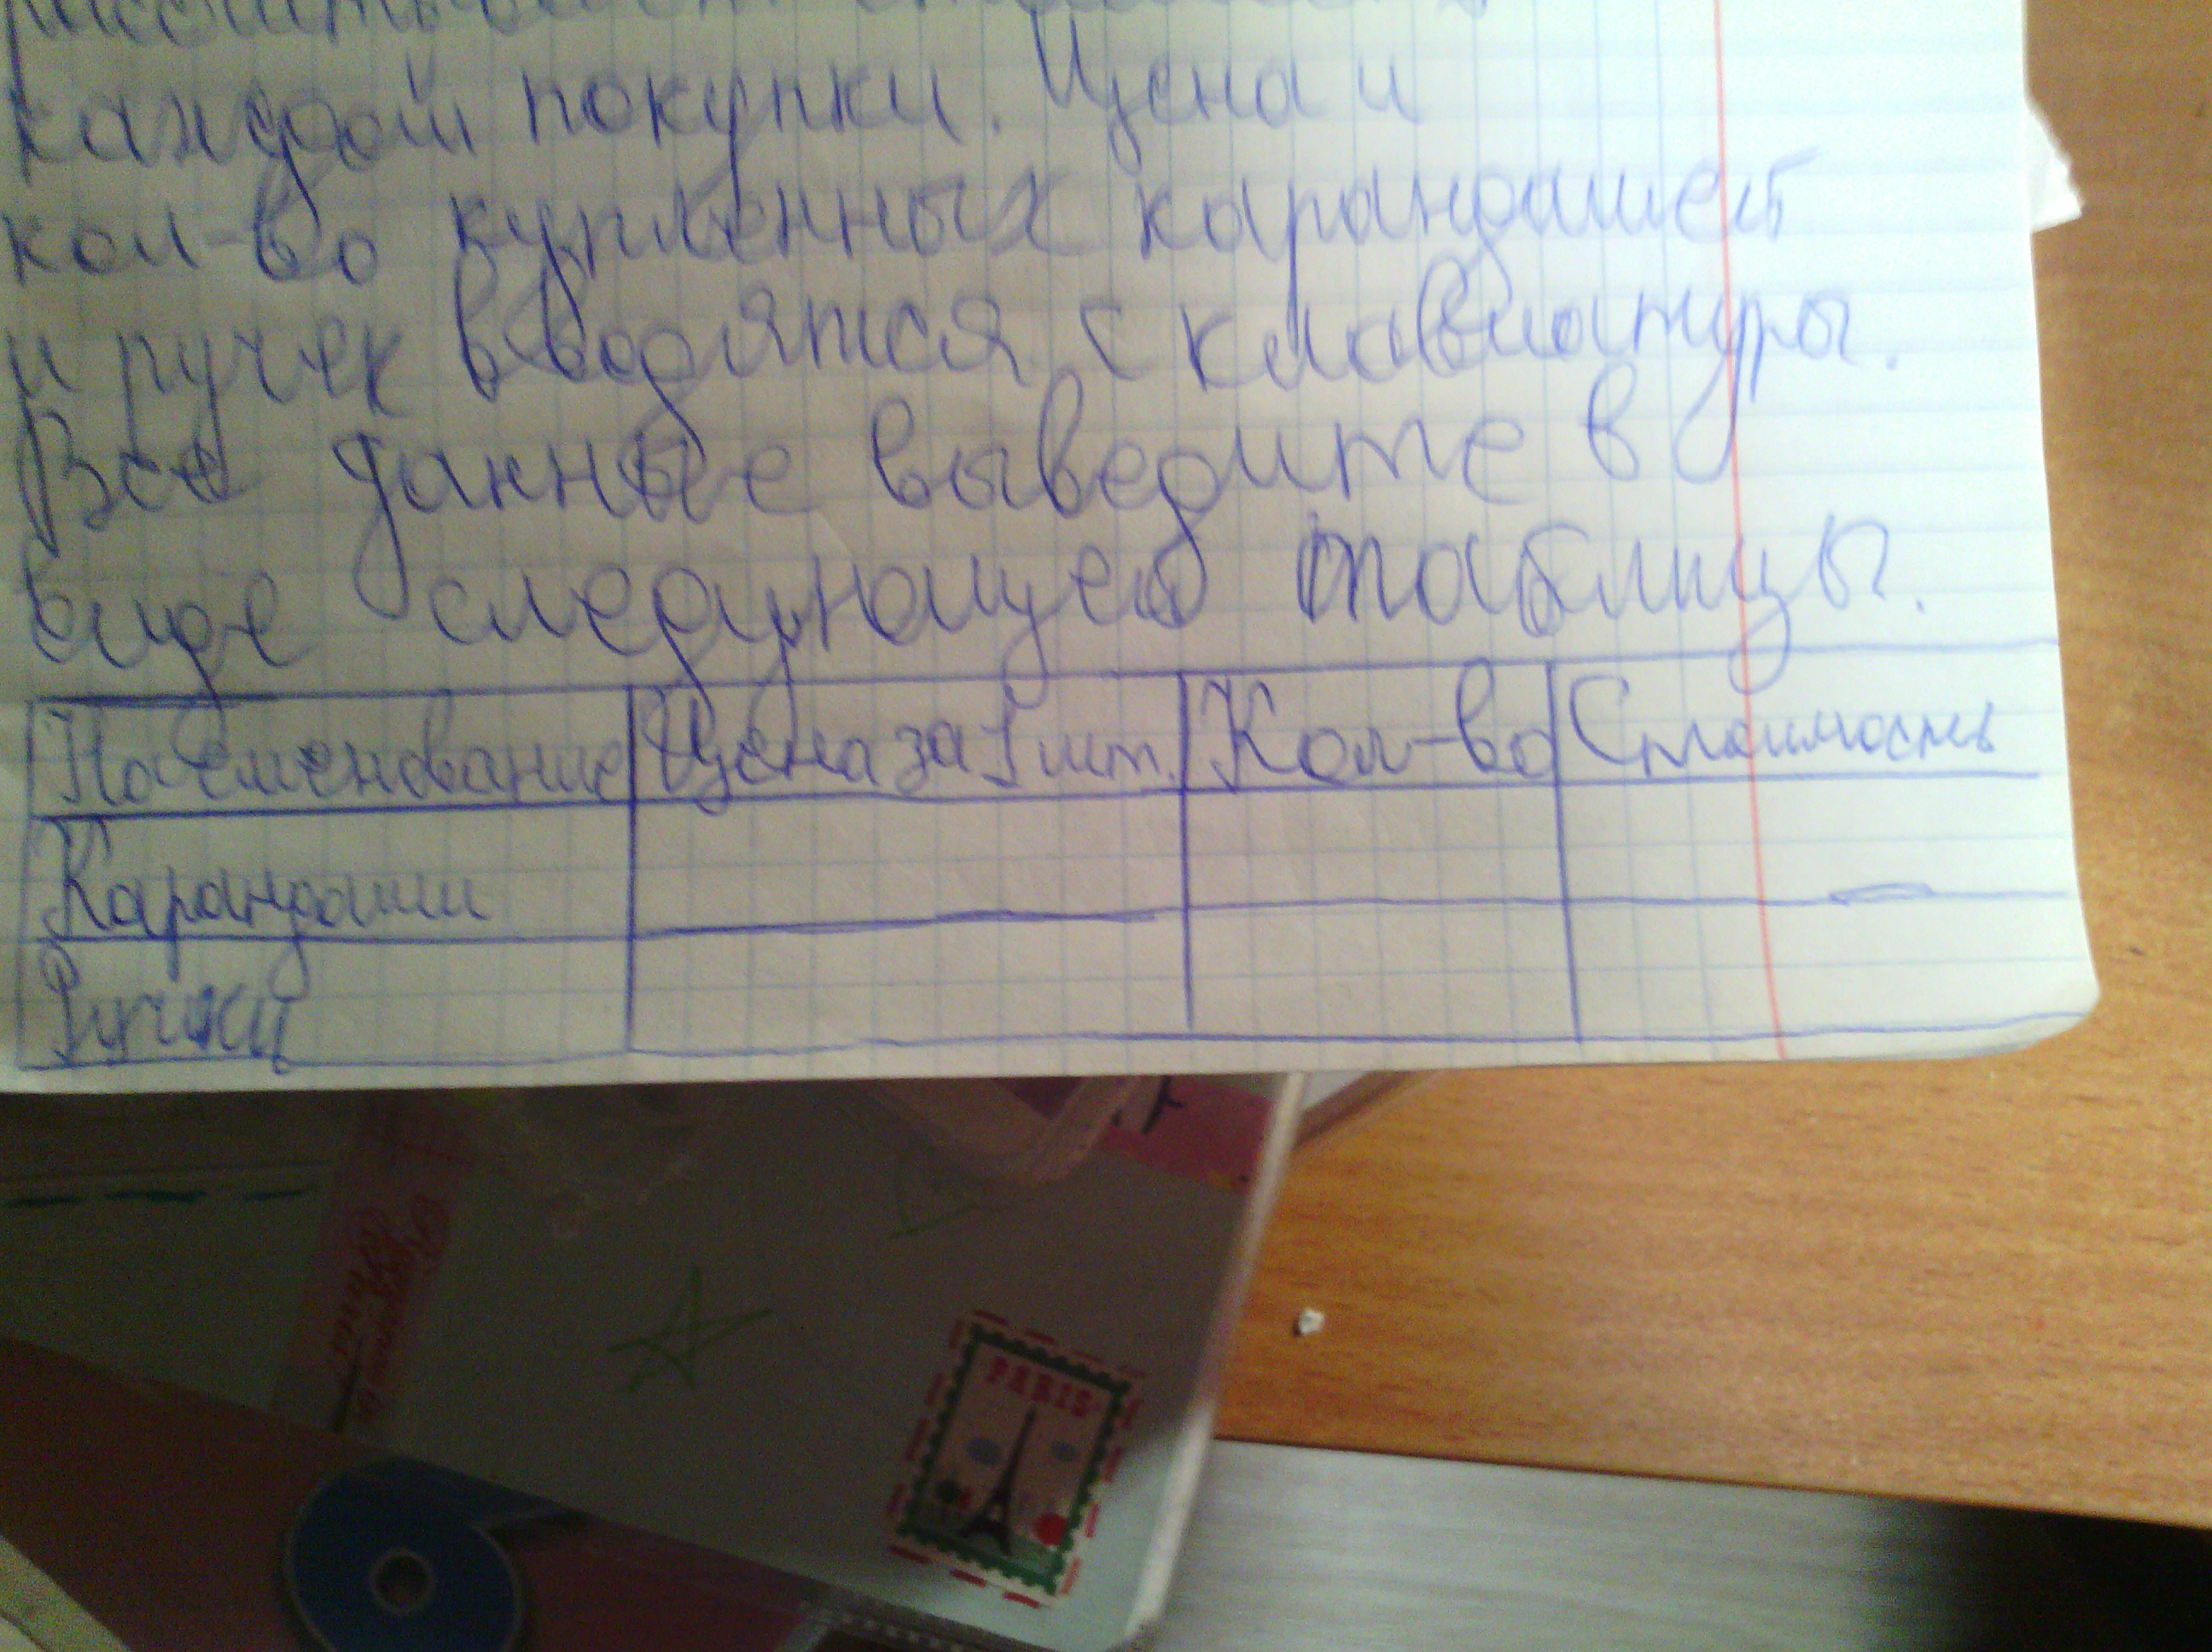 каждой покупки. Цена и
кол-во купленных карандашей
и ручек вводятся с клавиатуры.
Все данные выведите в
виде следующей таблицы.
Наеменование Цена за 1 шт. Кол-во Стоимость
Карандаши
Ручки
PARIS